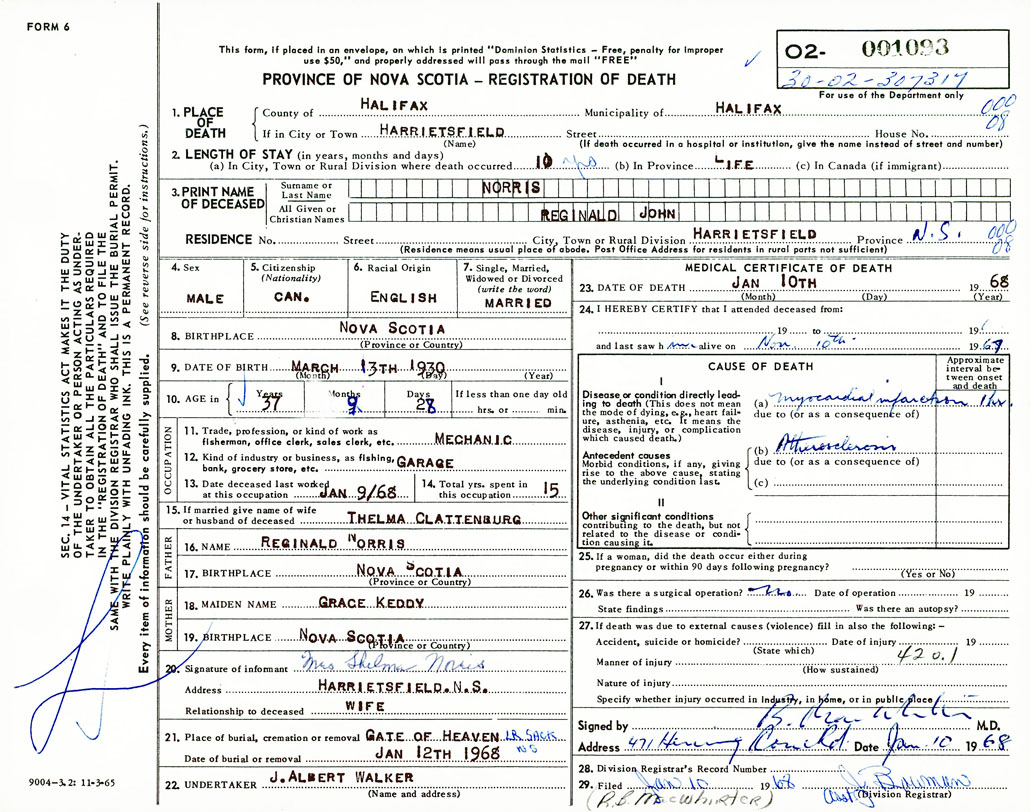 FORM 6
This form, if placed in an envelope, on which is printed "Dominion Statistics – Free, penalty for improper
use $50," and properly addressed will pass through the mail "FREE"
PROVINCE OF NOVA SCOTIA – REGISTRATION OF DEATH
02- 001093
30-02-307317
For use of the Department only
1. PLACE OF DEATH
County of HALIFAX Municipality of HALIFAX 000
If in City or Town HARRIETSFIELD Street House No. 08
(Name) (If death occurred in a hospital or institution, give the name instead of street and number)
2. LENGTH OF STAY (in years, months and days)
(a) In City, Town or Rural Division where death occurred 10 yrs (b) In Province LIFE (c) In Canada (if immigrant)
3. PRINT NAME OF DECEASED
Surname or Last Name NORRIS
All Given or Christian Names REGINALD JOHN
RESIDENCE No. Street City, Town or Rural Division HARRIETSFIELD Province N.S. 000 08
(Residence means usual place of abode. Post Office Address for residents in rural parts not sufficient)
4. Sex
MALE
5. Citizenship
(Nationality)
CAN.
6. Racial Origin
ENGLISH
7. Single, Married,
Widowed or Divorced
(write the word)
MARRIED
8. BIRTHPLACE NOVA SCOTIA
(Province or Country)
9. DATE OF BIRTH MARCH 13TH 1930
(Month) (Day) (Year)
10. AGE in Years Months Days If less than one day old
37 9 28 hrs. or min.
OCCUPATION
11. Trade, profession, or kind of work as
fisherman, office clerk, sales clerk, etc. MECHANIC
12. Kind of industry or business, as fishing,
bank, grocery store, etc. GARAGE
13. Date deceased last worked
at this occupation JAN 9/68
14. Total yrs. spent in
this occupation 15
15. If married give name of wife
or husband of deceased THELMA CLATTENBURG
FATHER
16. NAME REGINALD NORRIS
17. BIRTHPLACE NOVA SCOTIA
(Province or Country)
MOTHER
18. MAIDEN NAME GRACE KEDDY
19. BIRTHPLACE NOVA SCOTIA
(Province or Country)
20. Signature of informant Mrs Thelma Norris
Address HARRIETSFIELD. N.S.
Relationship to deceased WIFE
21. Place of burial, cremation or removal GATE OF HEAVEN LR SACK. NS
Date of burial or removal JAN 12TH 1968
22. UNDERTAKER J. ALBERT WALKER
(Name and address)
MEDICAL CERTIFICATE OF DEATH
23. DATE OF DEATH JAN 10TH 1968
(Month) (Day) (Year)
24. I HEREBY CERTIFY that I attended deceased from:
19 to 19
and last saw h alive on Nov. 10th 1967
CAUSE OF DEATH
Approximate
interval be-
tween onset
and death
I
Disease or condition directly lead-
ing to death (This does not mean
the mode of dying, e.g., heart fail-
ure, asthenia, etc. It means the
disease, injury, or complication
which caused death.)
(a) myocardial infarction 1 hr.
due to (or as a consequence of)
Antecedent causes
Morbid conditions, if any, giving
rise to the above cause, stating
the underlying condition last.
(b) Atherosclerosis
due to (or as a consequence of)
(c)
II
Other significant conditions
contributing to the death, but not
related to the disease or condi-
tion causing it.
25. If a woman, did the death occur either during
pregnancy or within 90 days following pregnancy?
(Yes or No)
26. Was there a surgical operation? No Date of operation 19
State findings Was there an autopsy?
27. If death was due to external causes (violence) fill in also the following: –
Accident, suicide or homicide? Date of injury 19
(State which) 420.1
Manner of injury
(How sustained)
Nature of injury
Specify whether injury occurred in Industry, in home, or in public place
Signed by M.D.
Address 471 Date Jan. 10 1968
28. Division Registrar's Record Number
29. Filed Jan 10 1968 J. Bauman
(Division Registrar)
(R.B. MacWhirter)
SEC. 14 – VITAL STATISTICS ACT MAKES IT THE DUTY
OF THE UNDERTAKER OR PERSON ACTING AS UNDER-
TAKER TO OBTAIN ALL THE PARTICULARS REQUIRED
IN THE "REGISTRATION OF DEATH" AND TO FILE THE
SAME WITH THE DIVISION REGISTRAR WHO SHALL ISSUE THE BURIAL PERMIT.
WRITE PLAINLY WITH UNFADING INK. THIS IS A PERMANENT RECORD.
Every item of information should be carefully supplied. (See reverse side for instructions.)
9004-3.2: 11-3-65